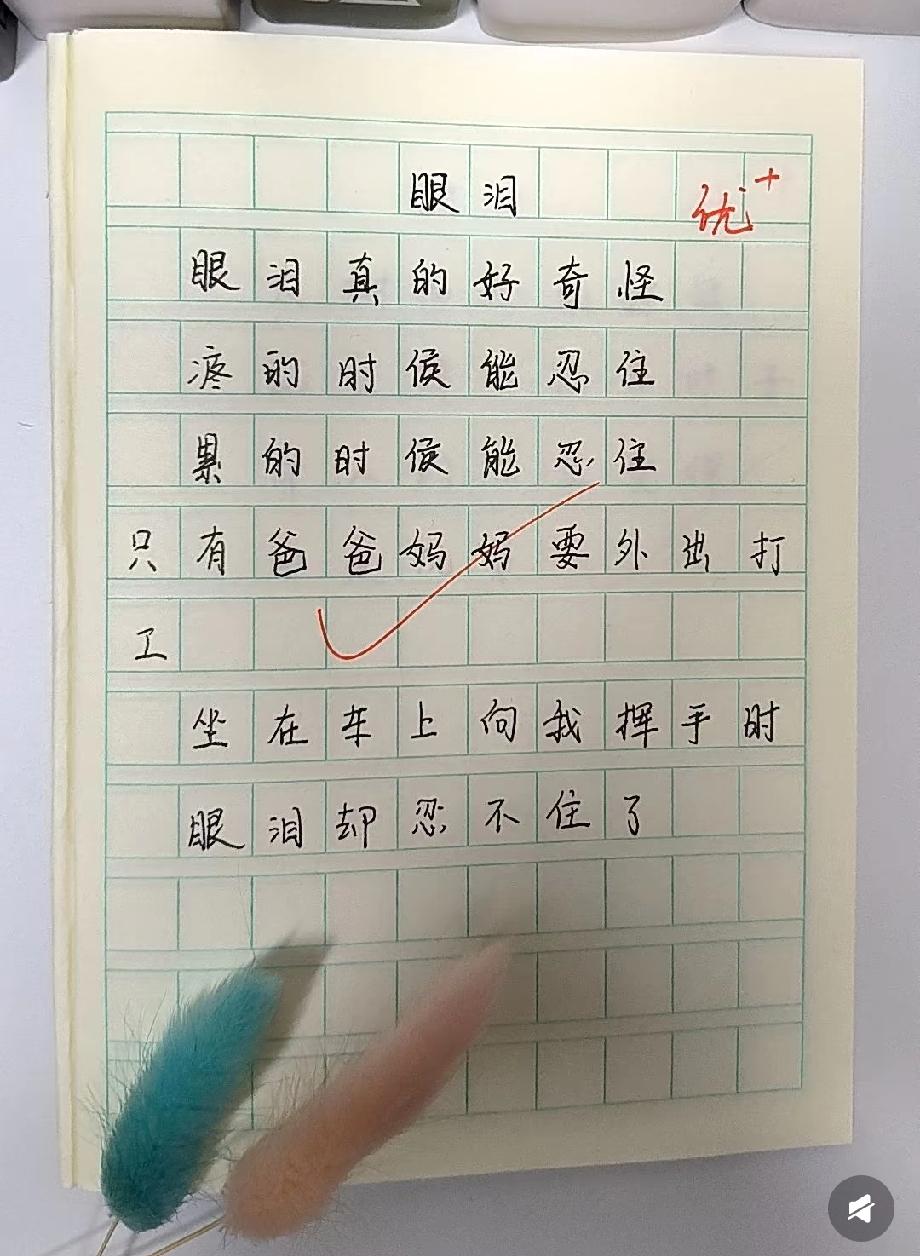 眼泪
优+
眼泪真的好奇怪
疼的时侯能忍住
累的时侯能忍住
只有爸爸妈妈要外出打
工
坐在车上向我挥手时
眼泪却忍不住了